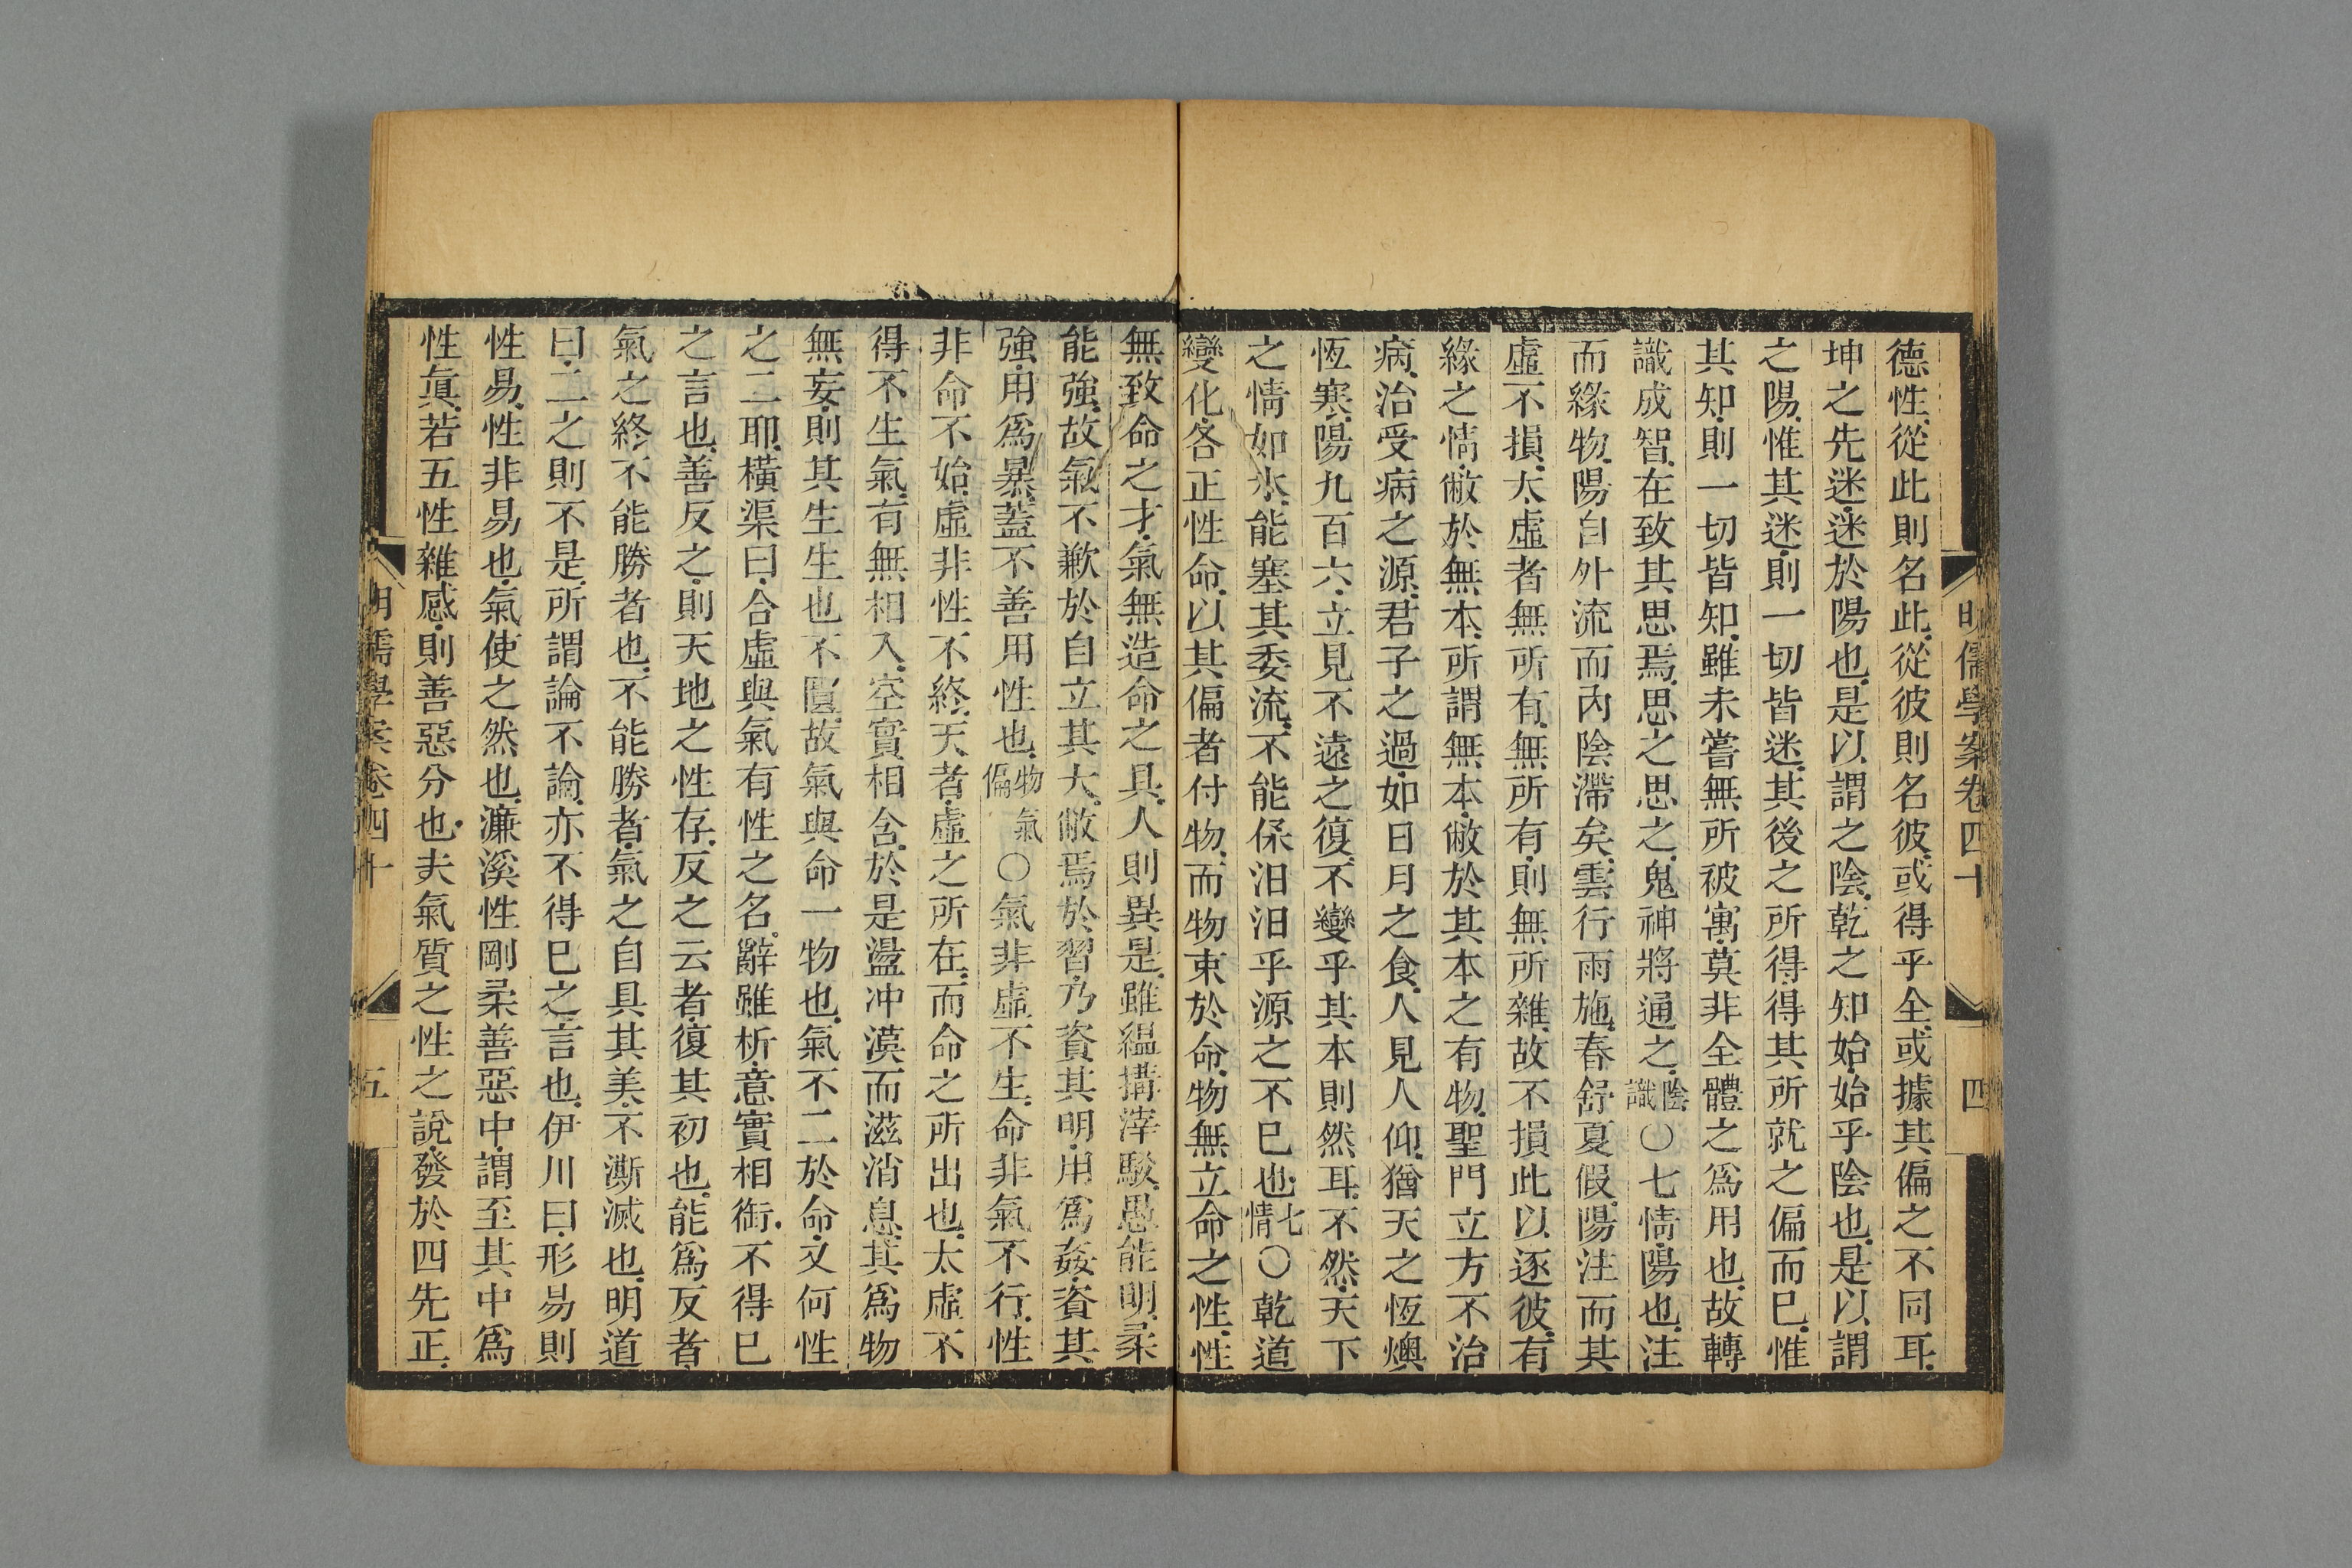 明儒學案卷四十 四
德性從此則名此從彼則名彼或得乎全或據其偏之不同耳
坤之先迷迷於陽也是以謂之陰乾之知始始乎陰也是以謂
之陽惟其迷則一切皆迷其後之所得得其所就之偏而已惟
其知則一切皆知雖未嘗無所被寓莫非全體之爲用也故轉
識成智在致其思焉思之思之鬼神將通之陰識〇七情陽也注
而緣物陽自外流而內陰滯矣雲行雨施春舒夏假陽注而其
虛不損太虛者無所有無所有則無所雜故不損此以逐彼有
緣之情敝於無本所謂無本敝於其本之有物聖門立方不治
病治受病之源君子之過如日月之食人見人仰猶天之恆燠
恆寒陽九百六立見不遠之復不變乎其本則然耳不然天下
之情如水能塞其委流不能保汨汨乎源之不已也七情〇乾道
變化各正性命以其偏者付物而物束於命物無立命之性性
無致命之才氣無造命之具人則異是雖緼搆滓駁愚能明柔
能強故氣不歉於自立其大敝焉於習乃資其明用爲姦資其
強用爲暴蓋不善用性也物氣偏〇氣非虛不生命非氣不行性
非命不始虛非性不終天者虛之所在而命之所出也太虛不
得不生氣有無相入空實相含於是盪冲漠而滋消息其爲物
無妄則其生生也不匱故氣與命一物也氣不二於命又何性
之二耶橫渠曰合虛與氣有性之名辭雖析意實相銜不得已
之言也善反之則天地之性存反之云者復其初也能爲反者
氣之終不能勝者也不能勝者氣之自具其美不澌滅也明道
曰二之則不是所謂論不論亦不得已之言也伊川曰形易則
性易性非易也氣使之然也濂溪性剛柔善惡中謂至其中爲
性眞若五性雜感則善惡分也夫氣質之性之說發於四先正
明儒學案卷四十 五